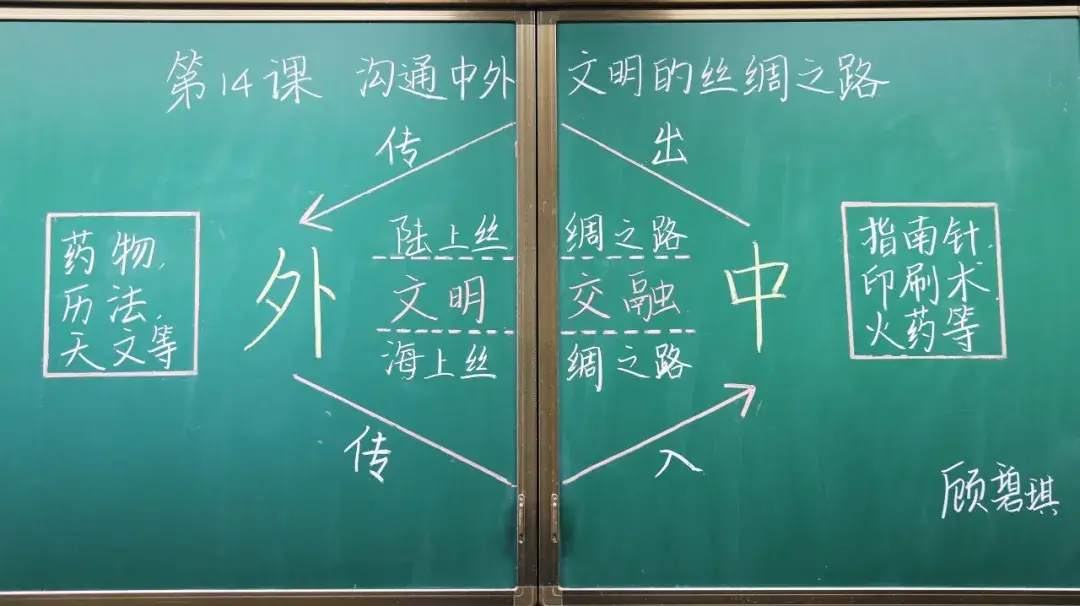 第14课 沟通中外文明的丝绸之路
传 出
陆上丝绸之路
药物,
历法,
天文等
外
文明交融
中
指南针,
印刷术
火药等
海上丝绸之路
传 入
顾碧琪